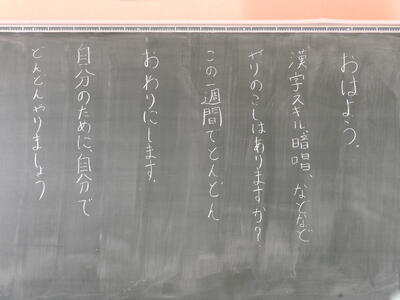 おはよう。
漢字スキル、暗唱、などなど
やりのこしはありますか？
この一週間でどんどん
おわりにします。
自分のために、自分で
どんどんやりましょう